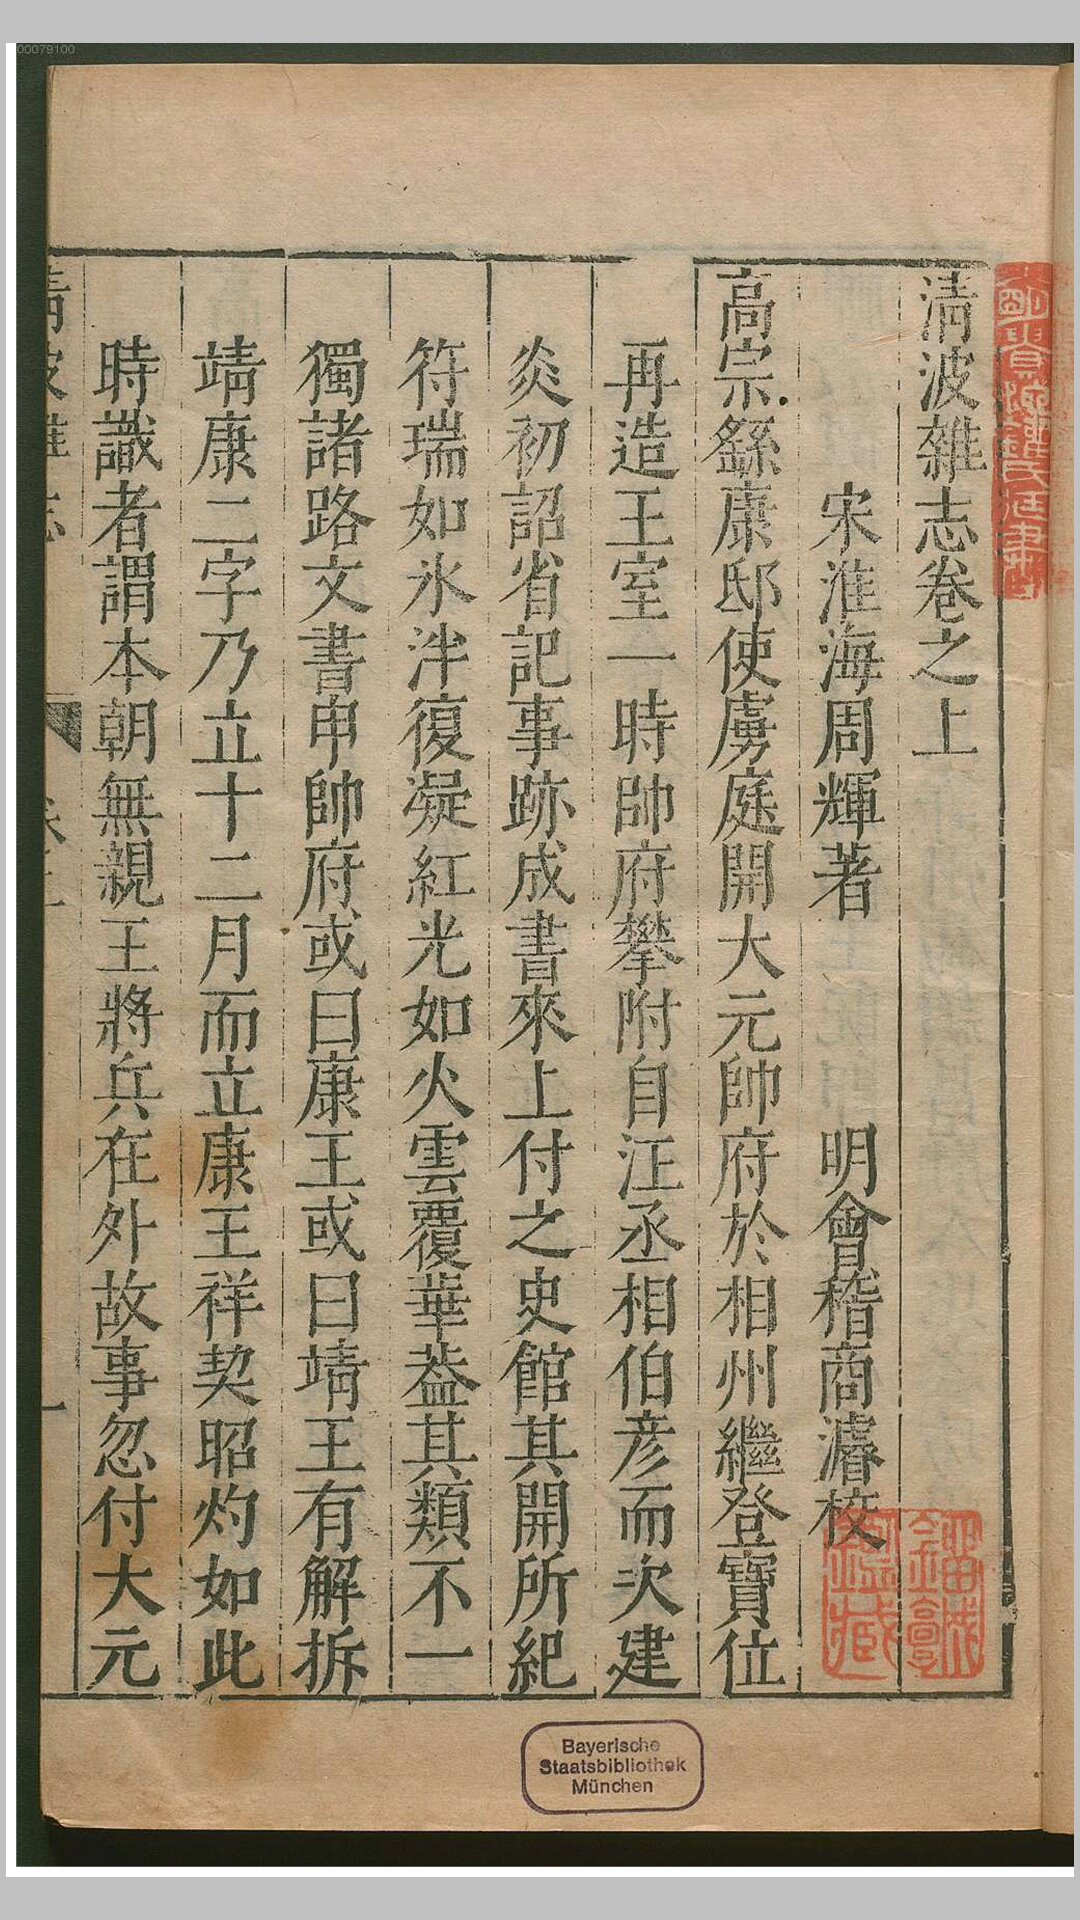 清波雜志卷之上
宋淮海周輝著 明會稽商濬校
高宗繇康邸使虜庭開大元帥府於相州繼登寶位
再造王室一時帥府攀附自汪丞相伯彥而次建
炎初詔省記事跡成書來上付之史館其開所紀
符瑞如氷泮復凝紅光如火雲覆華葢其類不一
獨諸路文書申帥府或曰康王或曰靖王有解拆
靖康二字乃立十二月而立康王祥契昭灼如此
時識者謂本朝無親王將兵在外故事忽付大元
清波雜志
一
Bayerische
Staatsbibliothek
München
00079100